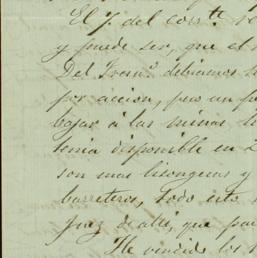 El 7. del corr.te
y puede ser, que el
Del Fresn.o debiamos
por accion, pero un
bajar á las minas
tenia disponible en
son mas lisongeras y
barreteros, Todo esto
juez de alli, que
He vendido los